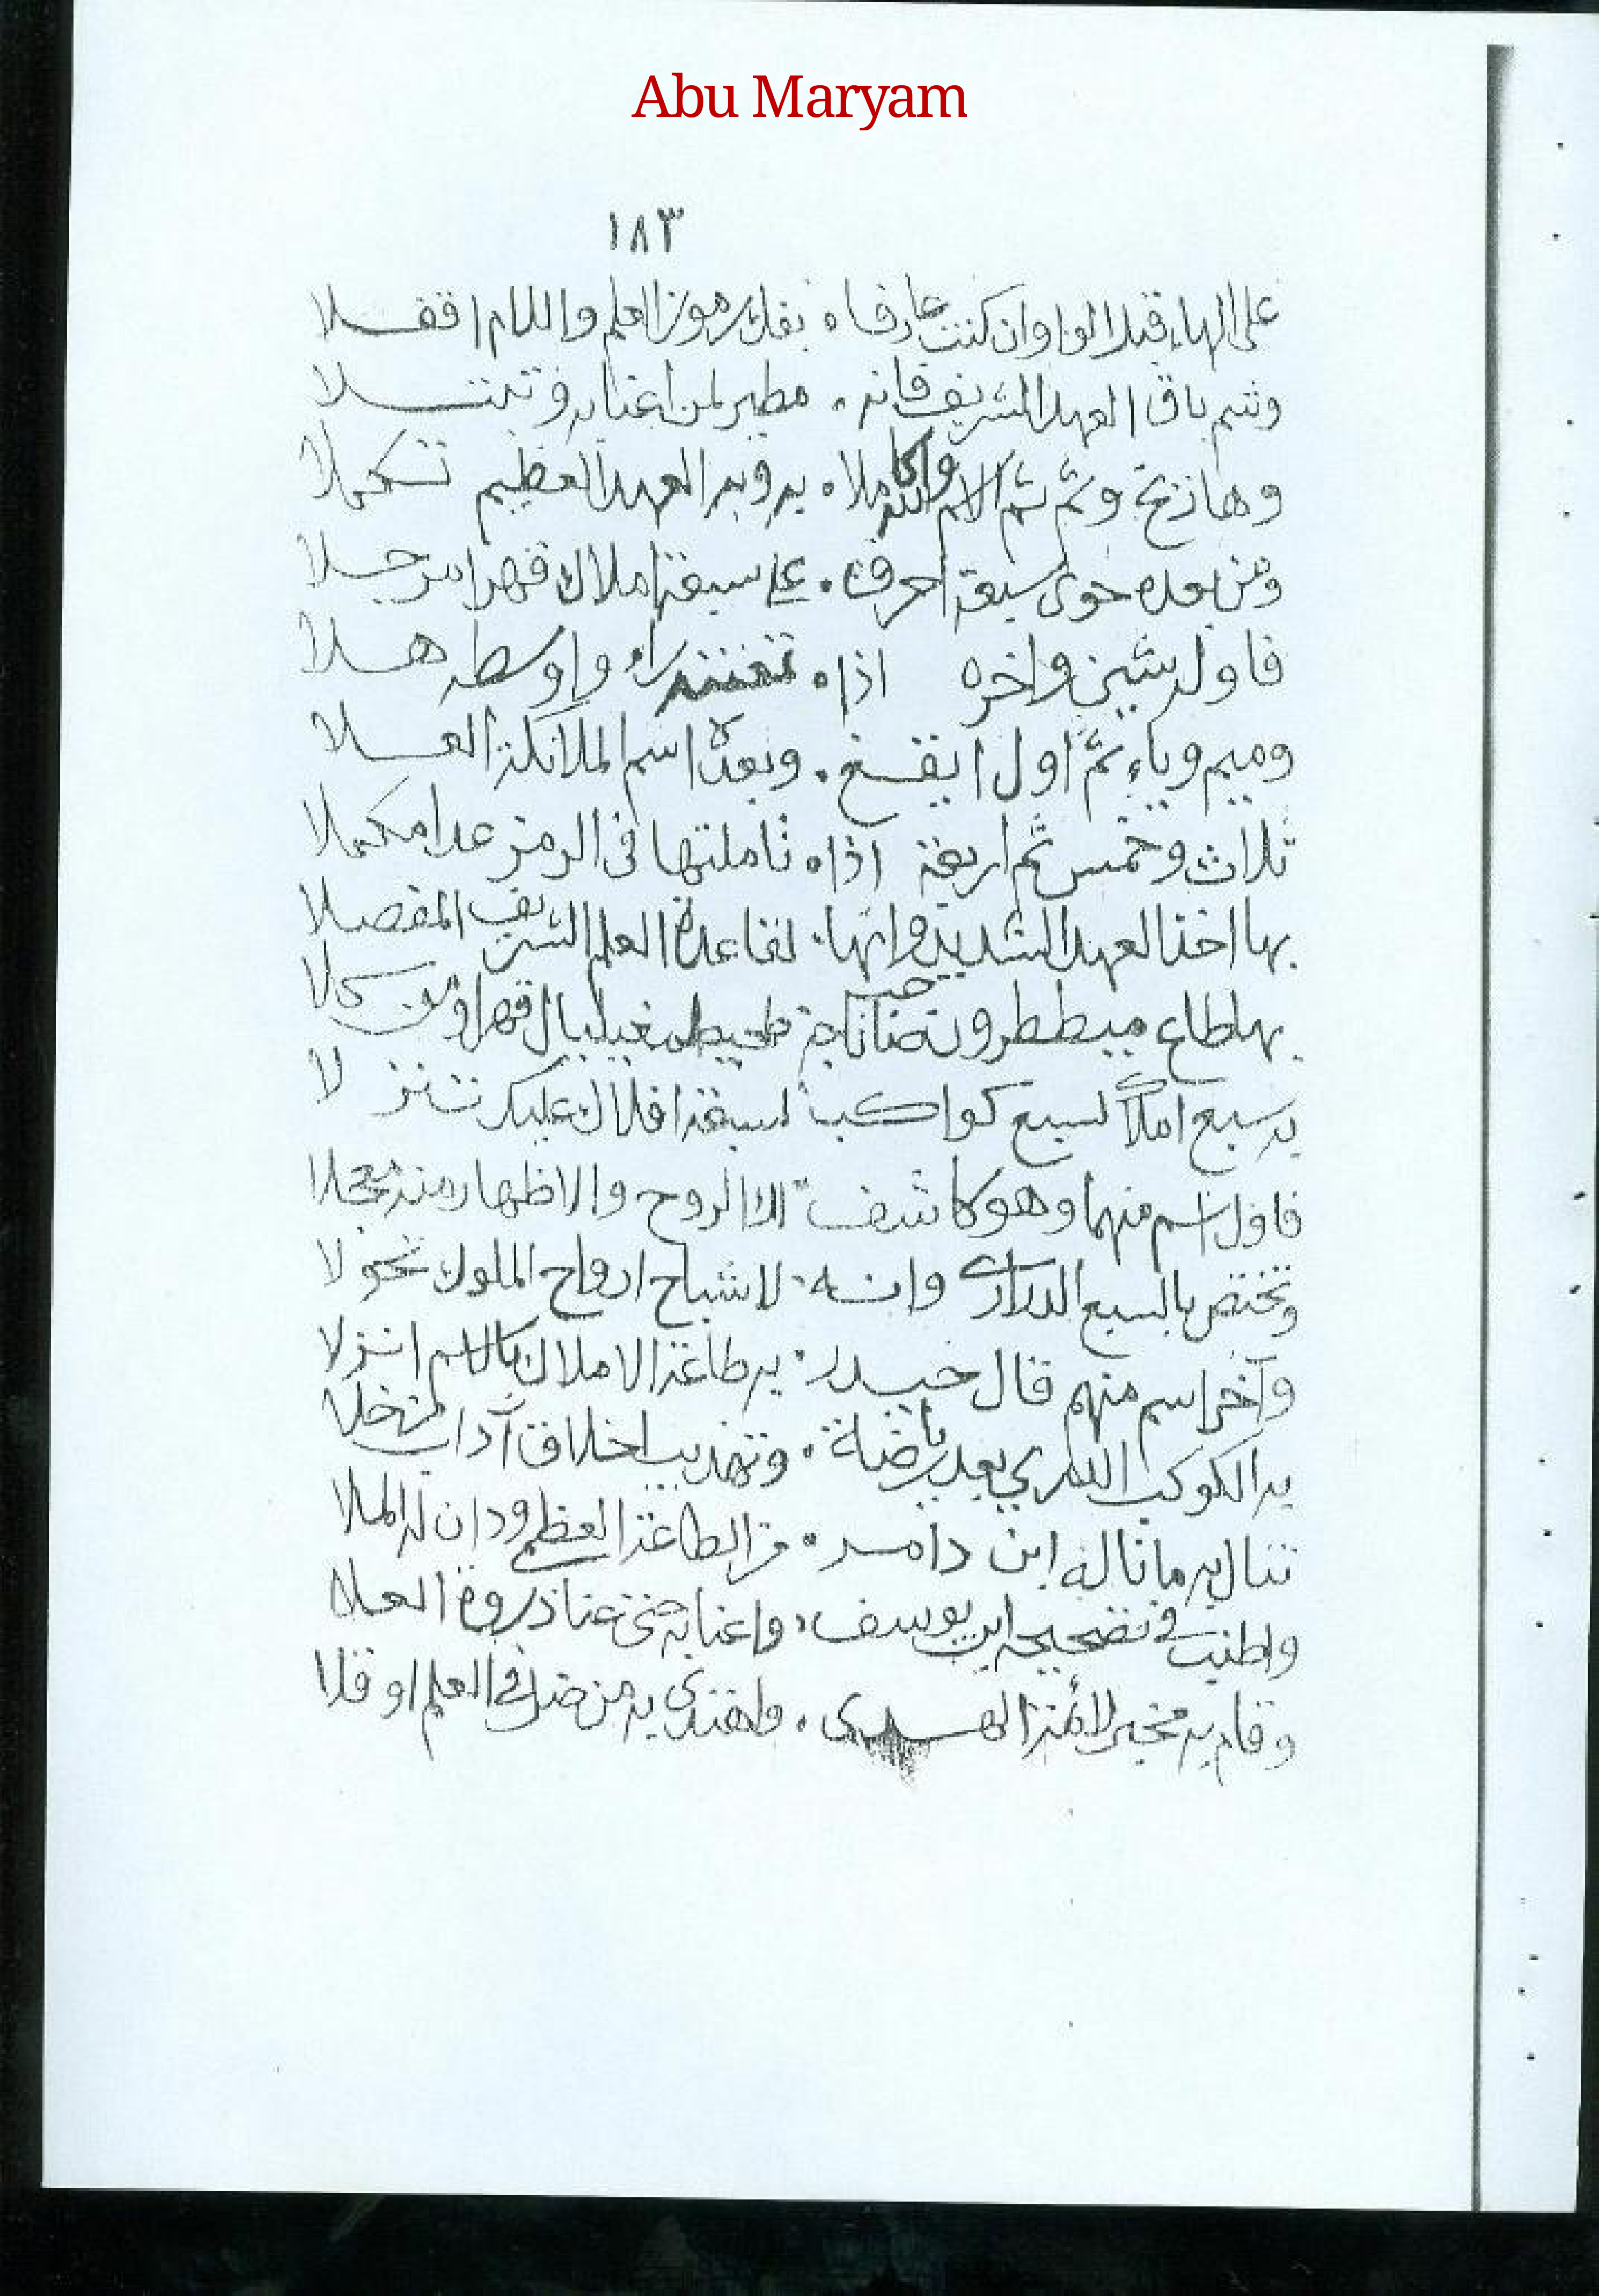 Abu Maryam
١٨٣
على الهاء قبلا الواو ان كنت عارفاه بفك رموز العلم واللام اقفلا
وثم باق العهد الشريف فانه مطير لمن اعنا به وتبتلا
وهازنج وثم ثم الامر واكاملاه به وبدا العهد العظيم تكملا
ومن بعده حوى سبعة احرفاه على سبعة املاك قهرا مرجلا
فاوله شين واخره اذاه راء واوسطه هلا
وميم وياء ثم اول ايقسغ وبعده اسم الملائكة العلا
ثلاث وخمس ثم اربعة اذاه تاملتها فى الرمز عدا مكملا
بها اخذ العهد الشديد وانها لقاعدة العلم الشريف المفصلا
بها طاع ميططرون قهرا
به سبع املاك لسبع كواكب لسبعة افلاك عليك تنزلا
فاول اسم منهما وهو كاشف الروح والاظهار منه معجلا
وتختص بالسبع الدرارى وانه لاشباح ارواح الملوك تحولا
وآخر اسم منهم قال حيدر به طاعة الاملاك بالاسم انزلا
به الكوكب الدري بعد رياضة وتهذيب اخلاق آداب لمن خلا
تنال به ما ناله ابن دامر من الطاعة العظمى ودان له الملا
واطنب فى تصحيحه ابن يوسف واعنا به حتى عنا ذروة العلا
وقام به مخبر لائمة الهدى واهتدى به من ضل فى العلم او قلا